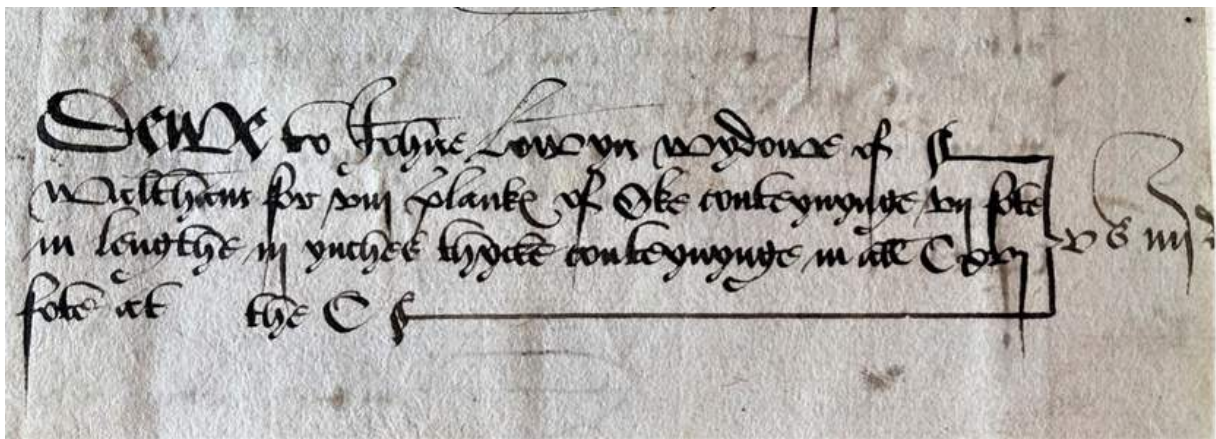 Dewe to Johne Lowyn wydowe of
Waltham for viij plankes of Oke conteynynge vij fote
in lengthe iij ynches thycke conteynynge in all C v s iiij
fote at the C